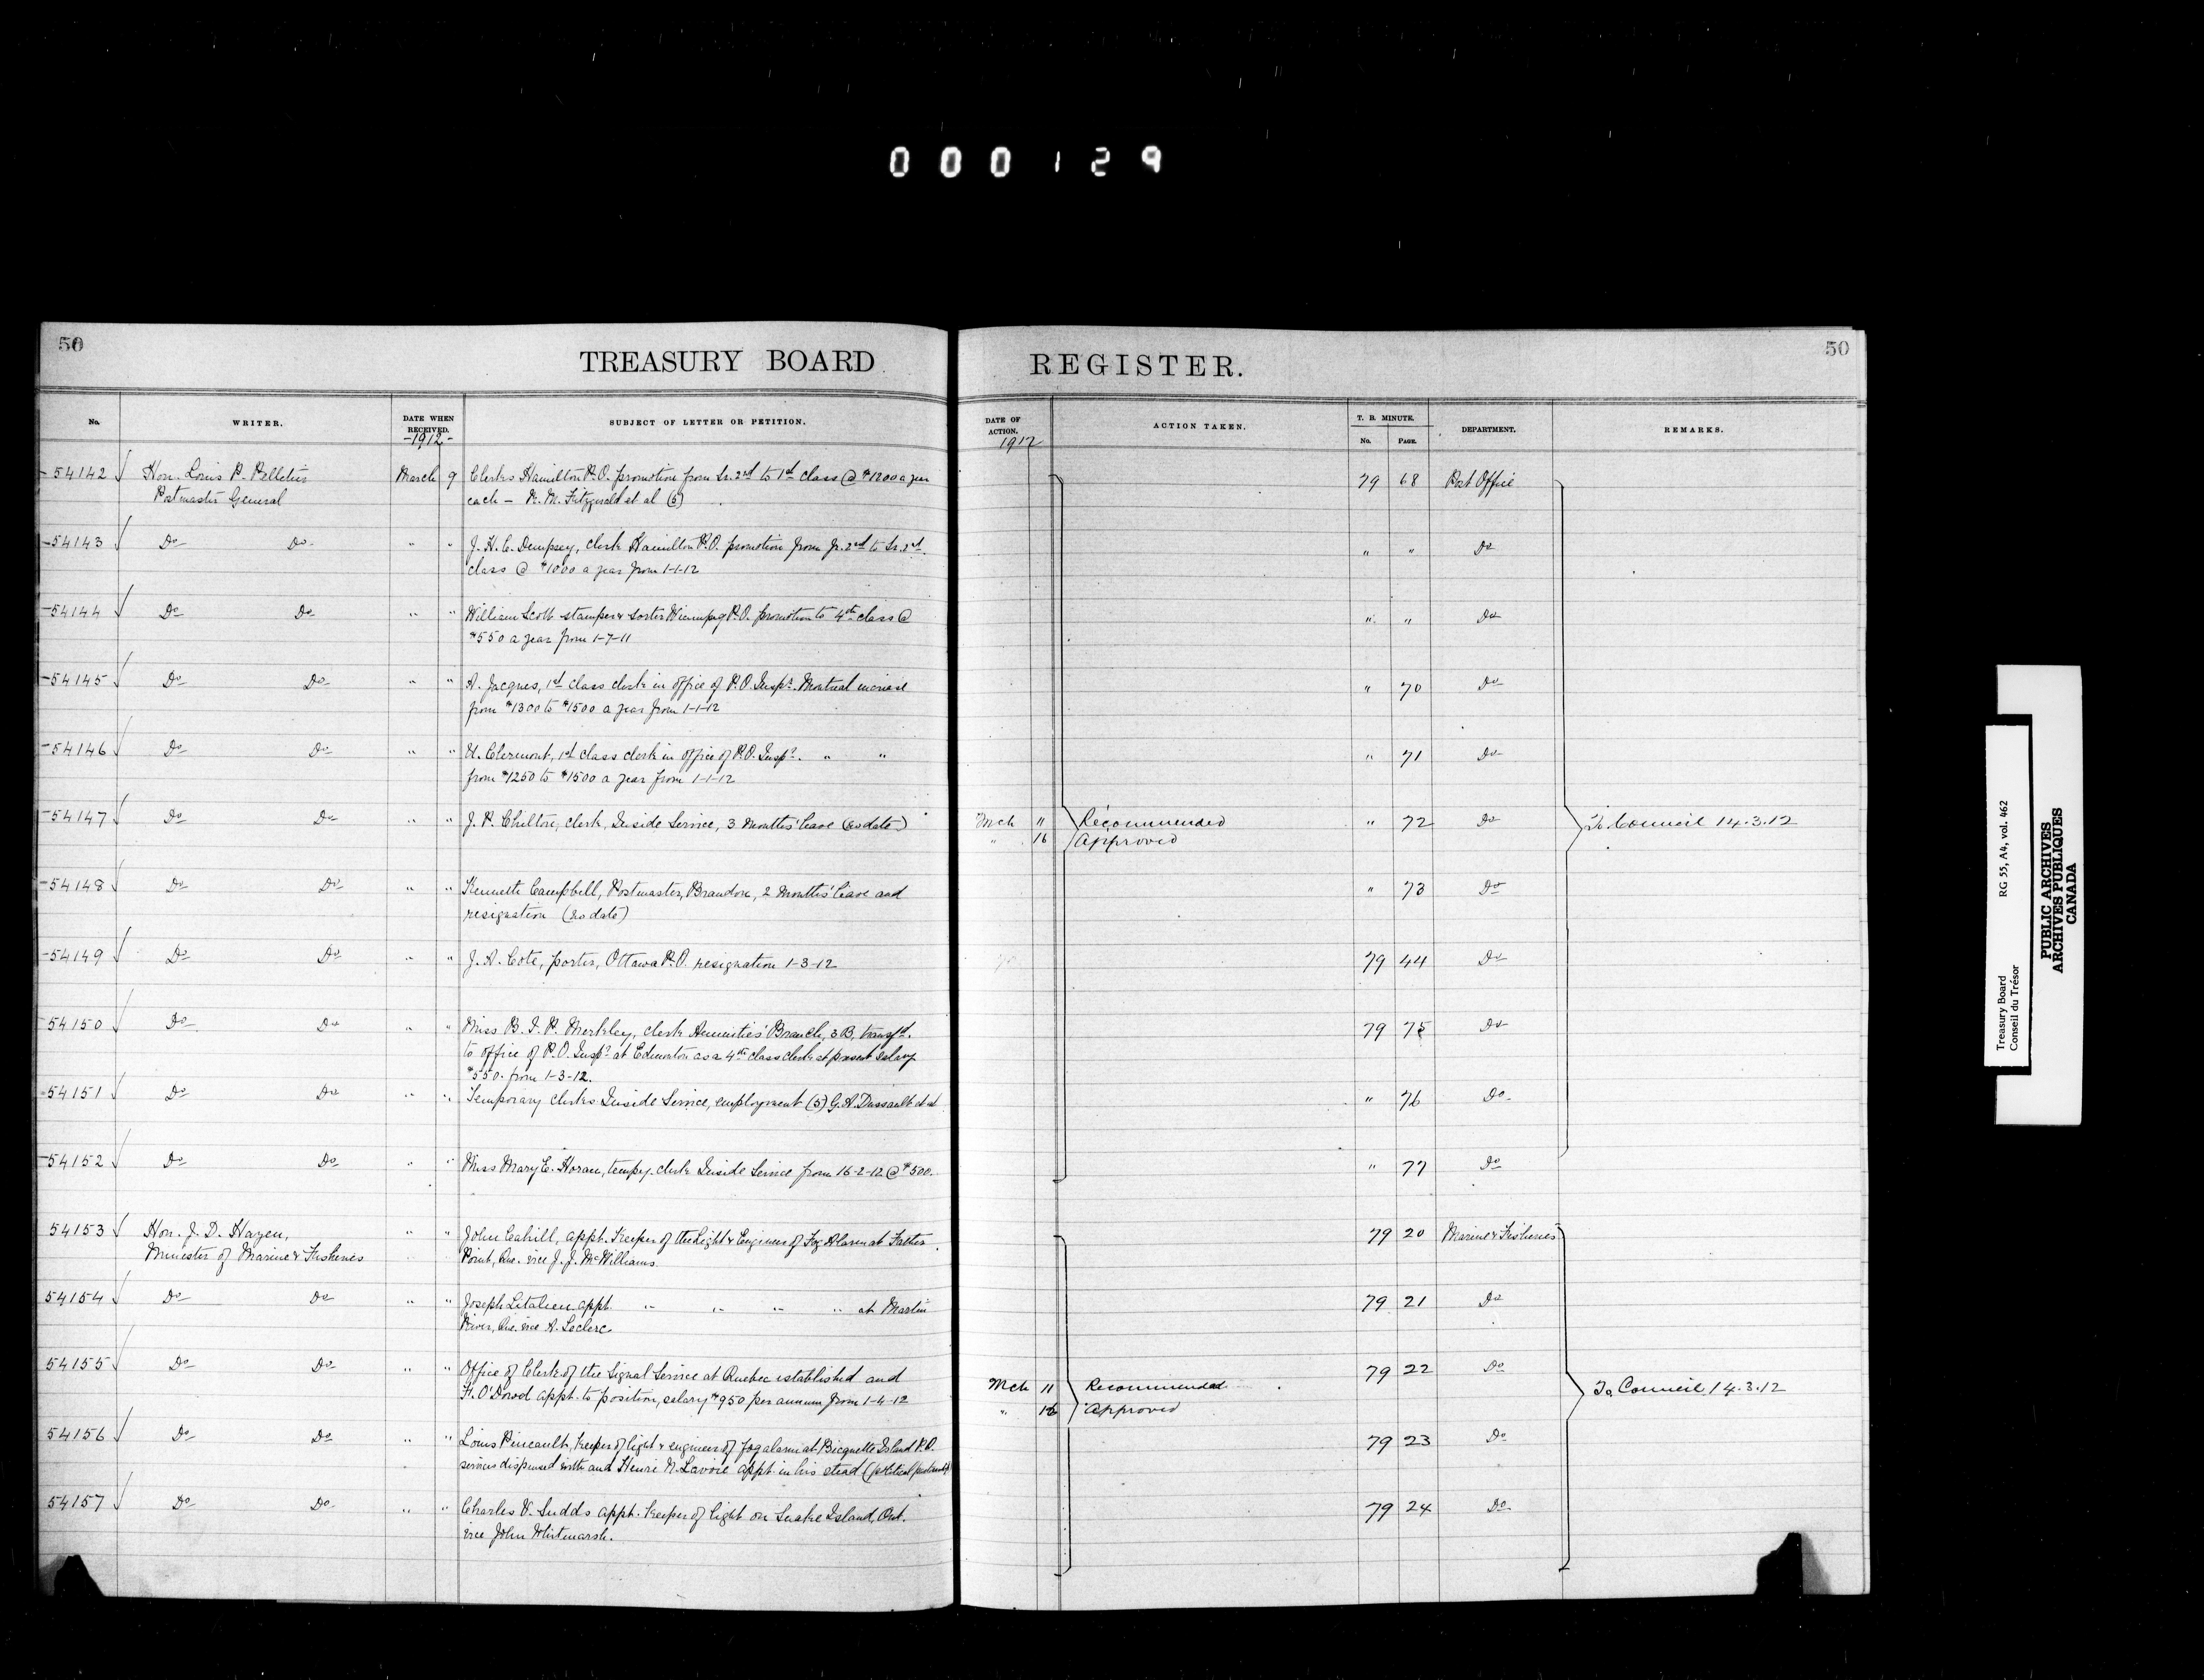 000129
50
TREASURY BOARD
REGISTER.
50
No.
WRITER.
DATE WHEN RECEIVED.
-1912-
SUBJECT OF LETTER OR PETITION.
DATE OF ACTION.
1912
ACTION TAKEN.
T. B. MINUTE.
No.
PAGE.
DEPARTMENT.
REMARKS.
54142 Hon. Louis P. Pelletier March 9 Clerks Hamilton P.O. promotion from Sr. 2nd to 1st class @ $1200 a year 79 68 Post Office
Postmaster General each - R. M. Fitzgerald et al (6)
54143 Do Do " " J. H. C. Dempsey, clerk Hamilton P.O. promotion from Jr. 2nd to Sr. 2nd " " Do
class @ $1000 a year from 1-1-12
54144 Do Do " " William Scott stamper & sorter Winnipeg P.O. promotion to 4th class @ " " Do
$550 a year from 1-7-11
54145 Do Do " " A. Jacques, 1st class clerk in office of P.O. Inspr. Montreal increase " 70 Do
from $1300 to $1500 a year from 1-1-12
54146 Do Do " " H. Clermont, 1st class clerk in office of P.O. Inspr. " " " 71 Do
from $1250 to $1500 a year from 1-1-12
54147 Do Do " " J. P. Chilton, clerk, Inside Service, 3 months' leave (no date) Mch 11 Recommended " 72 Do To Council 14.3.12
" 16 Approved
54148 Do Do " " Kenneth Campbell, Postmaster, Brandon, 2 months' leave and " 73 Do
resignation (no date)
54149 Do Do " " J. A. Cote, porter, Ottawa P.O. resignation 1-3-12 79 44 Do
54150 Do Do " " Miss B. I. P. Merkley, clerk Annuities' Branch, 3B, transfd. 79 75 Do
to office of P.O. Inspr at Edmonton as a 4th class clerk at present salary
$550. from 1-3-12.
54151 Do Do " " Temporary clerks Inside Service, employment (5) G. A. Dussault et al " 76 Do
54152 Do Do " " Miss Mary E. Horan, tempy. clerk Inside Service from 16-2-12 @ $500. " 77 Do
54153 Hon. J. D. Hazen, " " John Cahill, appt. Keeper of the Light & Engineer of Fog Alarm at Father 79 20 Marine & Fisheries
Minister of Marine & Fisheries Point, Que. vice J. J. McWilliams.
54154 Do Do " " Joseph Litalien appt. " " " " at Martin 79 21 Do
River, Que. vice A. Leclerc
54155 Do Do " " Office of Clerk of the Signal Service at Quebec established and 79 22 Do
F. O'Dowd appt. to position, salary $950 per annum from 1-4-12 Mch 11 Recommended To Council 14.3.12
" 16 Approved
54156 Do Do " " Louis Pineault, Keeper of light & engineer of fog alarm at Bicquette Island P.Q. 79 23 Do
services dispensed with and Henri N. Lavoie appt. in his stead (political partisanship)
54157 Do Do " " Charles V. Sudds appt. Keeper of light on Snake Island, Ont. 79 24 Do
vice John Whitmarsh.
Treasury Board RG 55, A4, vol. 462
Conseil du Trésor
PUBLIC ARCHIVES
ARCHIVES PUBLIQUES
CANADA